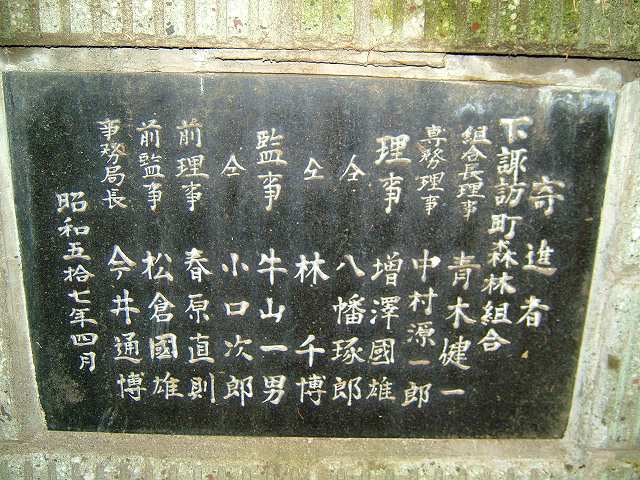 寄進者
下諏訪町森林組合
組合長理事 青木健一
専務理事 中村源一郎
理事 増澤國雄
仝 八幡琢郎
仝 林千博
監事 牛山一男
仝 小口次郎
前理事 春原直則
前監事 松倉國雄
事務局長 今井通博
昭和五拾七年四月